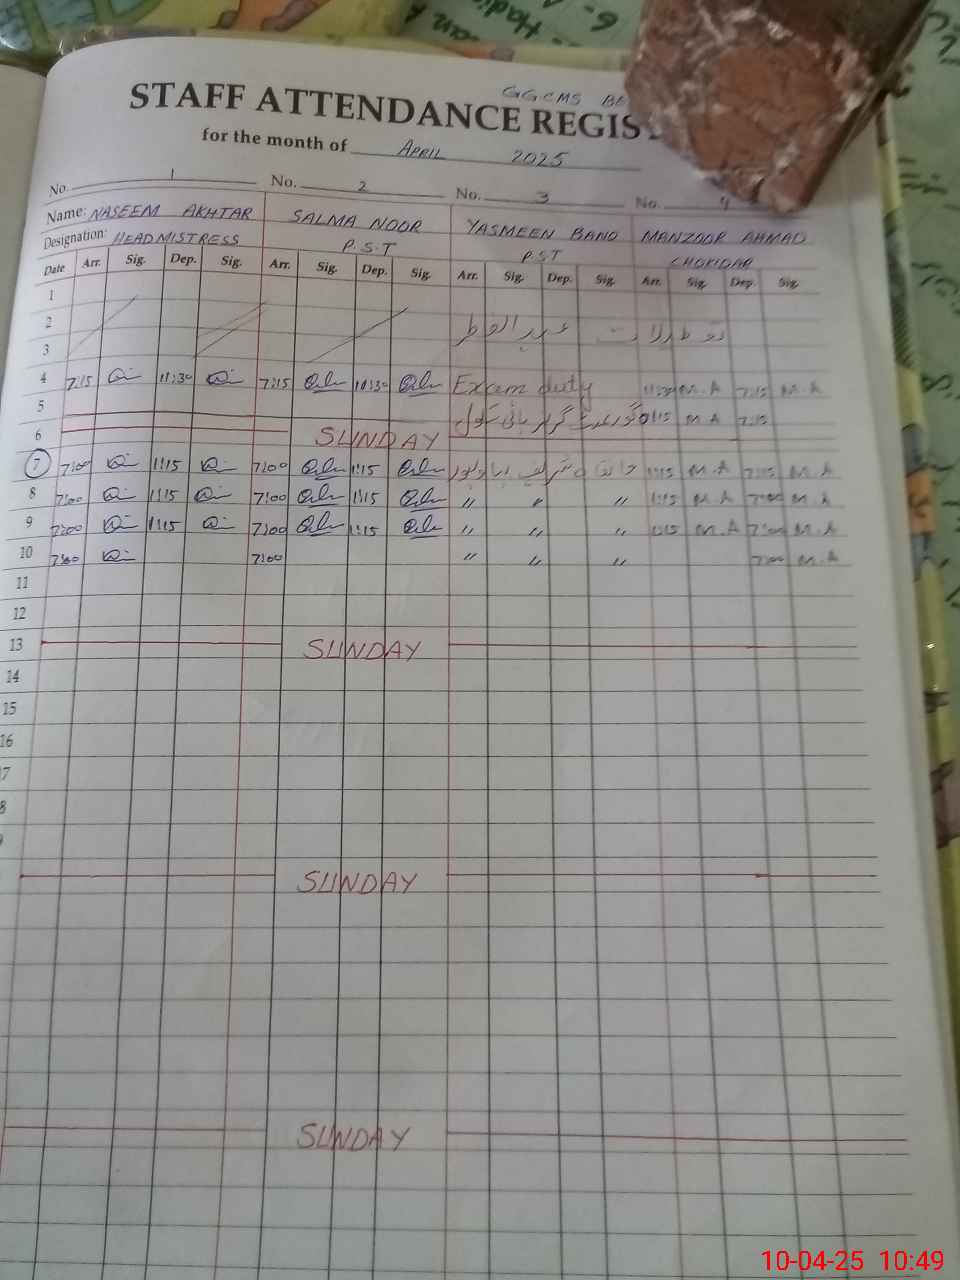 GGCMS
STAFF ATTENDANCE REGIS
for the month of APRIL 2025
No. 1 No. 2 No. 3 No. 4
Name: NASEEM AKHTAR SALMA NOOR YASMEEN BANO MANZOOR AHMAD
Designation: HEADMISTRESS P.S.T P.S.T CHOKIDAR
Date Arr. Sig. Dep. Sig. Arr. Sig. Dep. Sig. Arr. Sig. Dep. Sig. Arr. Sig. Dep. Sig.
1
2 تعطیلات عید الفطر
3
4 7:15 11:30 7:15 11:30 Exam duty 11:30 M.A 7:15 M.A
5 گورنمنٹ گرلز ہائی سکول 1:15 M A 7:15
6 SUNDAY
7 7:00 1:15 7:00 1:15 1:15 M.A 7:15 M.A
8 7:00 1:15 7:00 1:15 " " " 1:15 M.A 7:00 M.A
9 7:00 1:15 7:00 1:15 " " " 1:15 M.A 7:00 M.A
10 7:00 7:00 " " " 7:00 M.A
11
12
13 SUNDAY
14
15
16
7
8
SUNDAY
SUNDAY
10-04-25 10:49